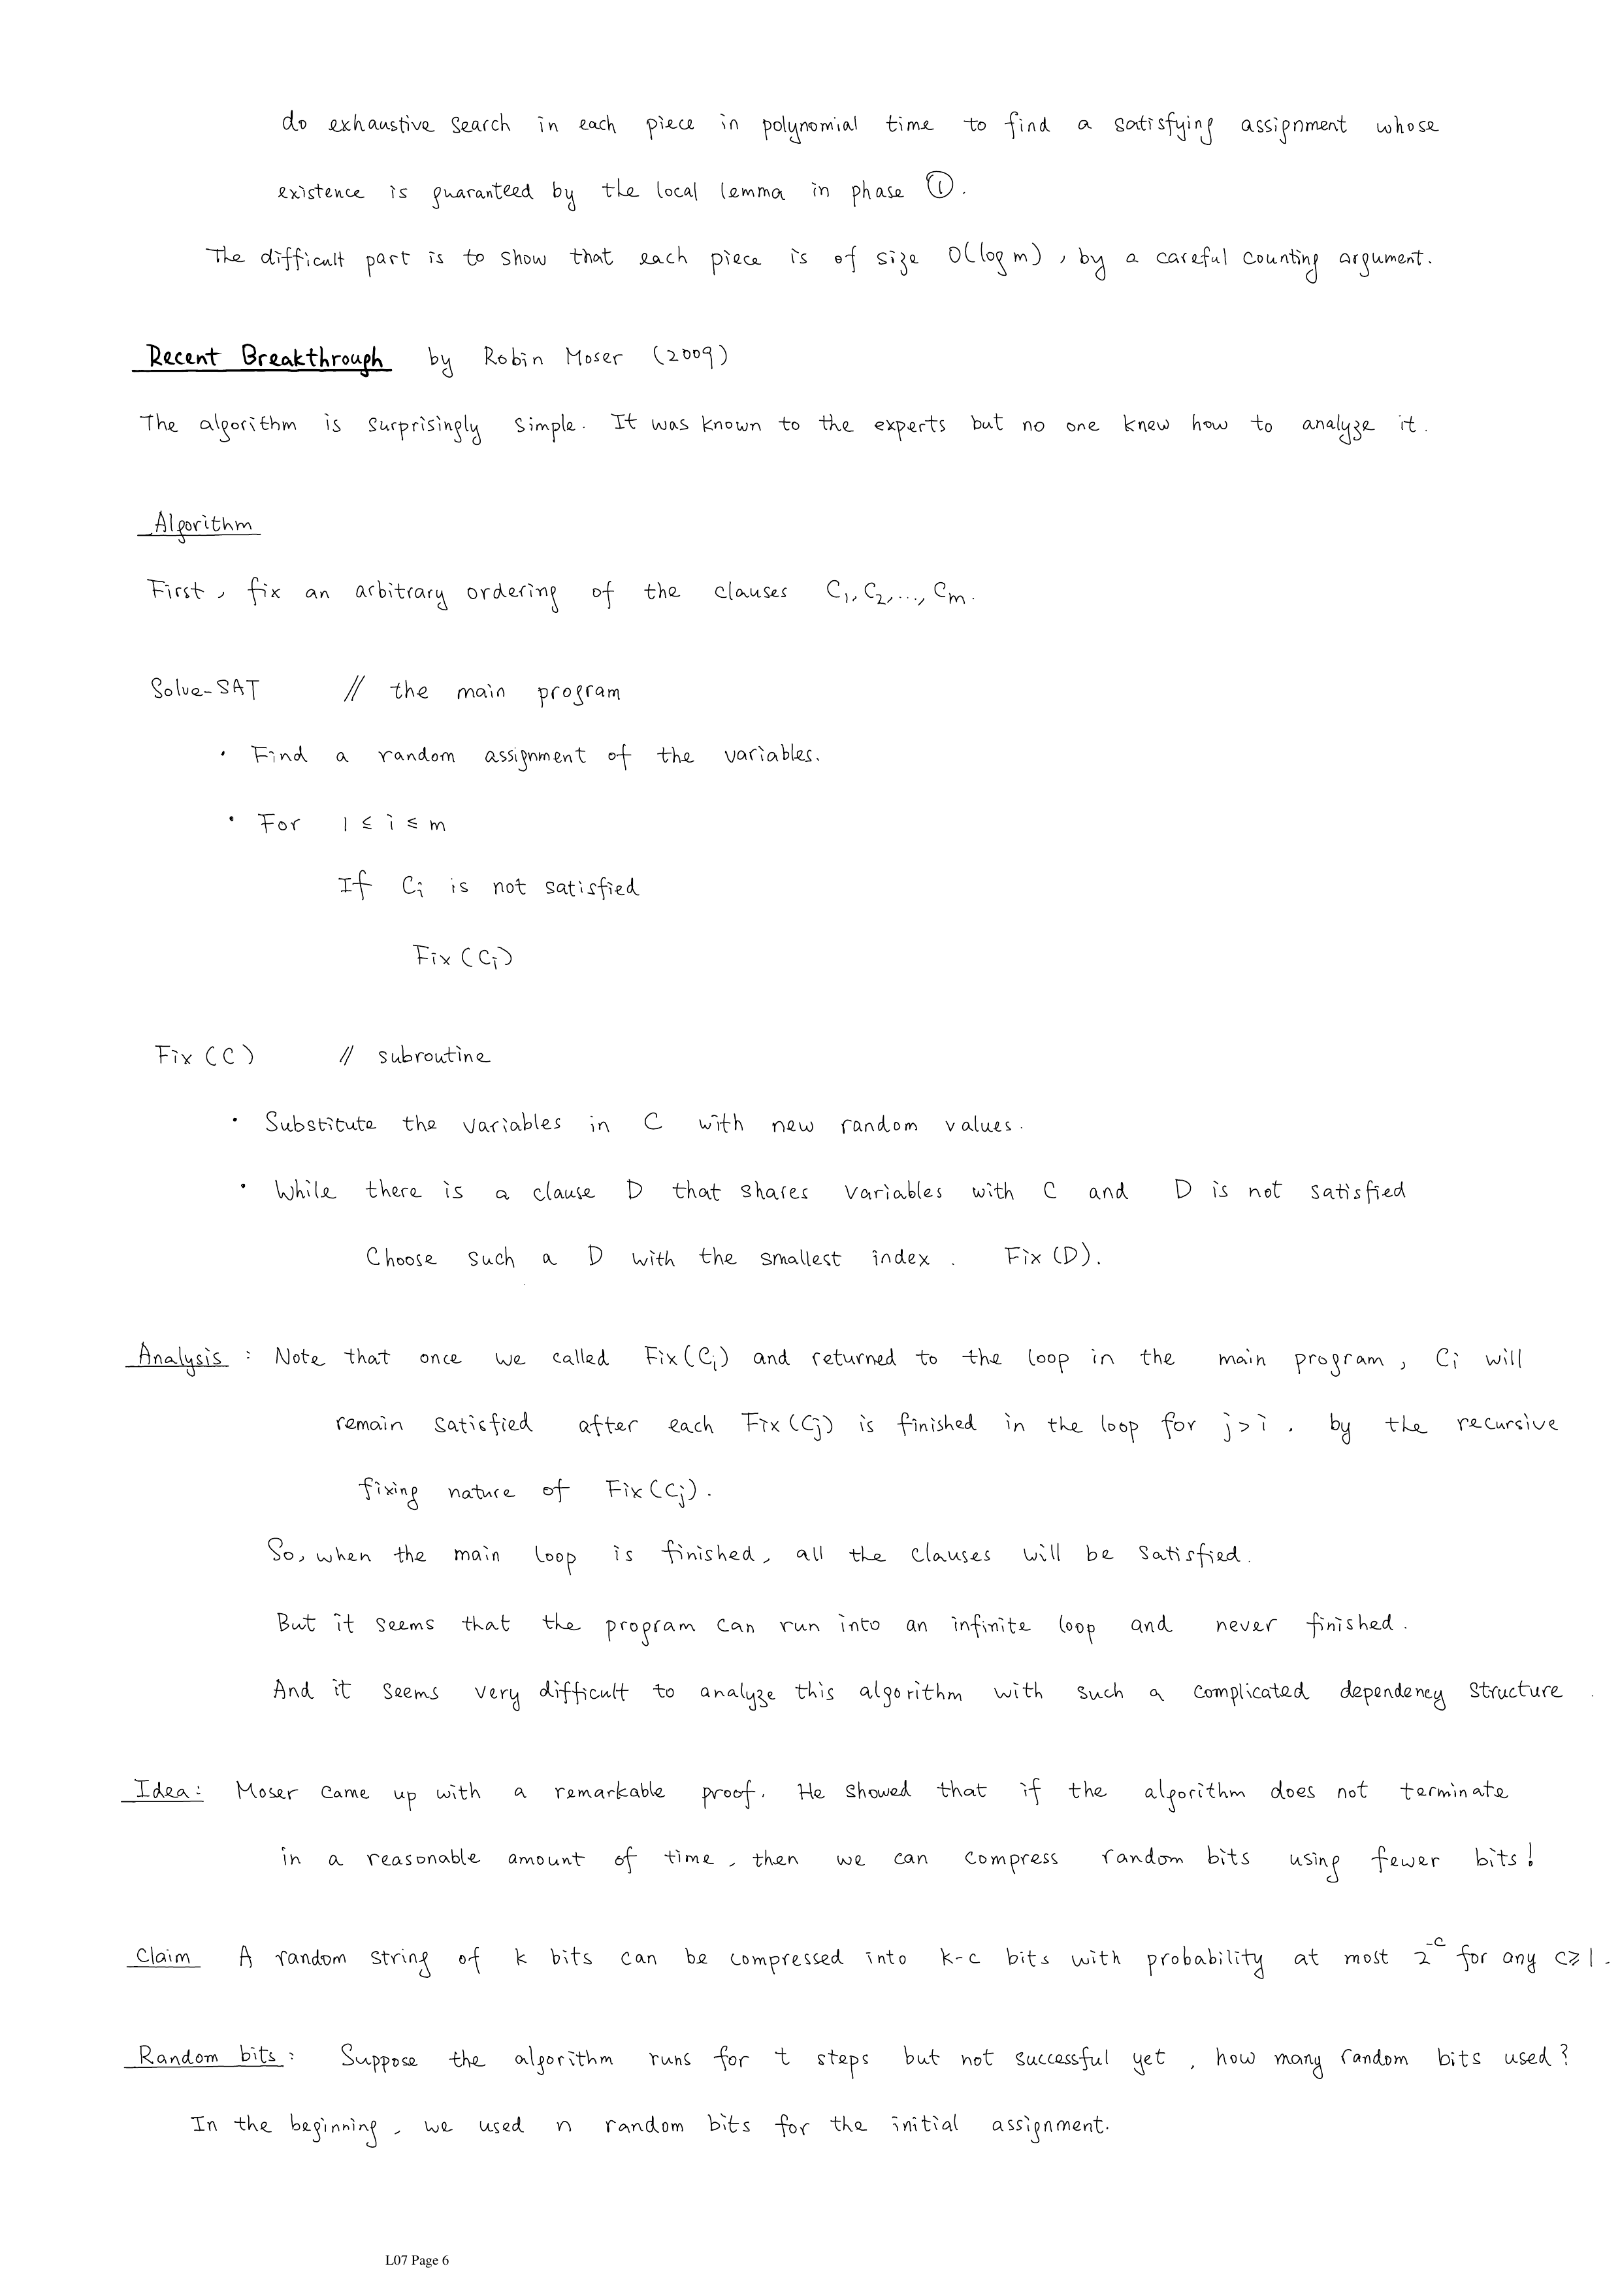 do exhaustive search in each piece in polynomial time to find a satisfying assignment whose
existence is guaranteed by the local lemma in phase ①.
The difficult part is to show that each piece is of size O(log m), by a careful counting argument.
Recent Breakthrough by Robin Moser (2009)
The algorithm is surprisingly simple. It was known to the experts but no one knew how to analyze it.
Algorithm
First, fix an arbitrary ordering of the clauses C₁, C₂, ..., Cₘ.
Solve-SAT // the main program
• Find a random assignment of the variables.
• For 1 ≤ i ≤ m
If Cᵢ is not satisfied
Fix (Cᵢ)
Fix (C) // subroutine
• Substitute the variables in C with new random values.
• While there is a clause D that shares variables with C and D is not satisfied
Choose such a D with the smallest index. Fix (D).
Analysis : Note that once we called Fix(Cᵢ) and returned to the loop in the main program, Cᵢ will
remain satisfied after each Fix(Cⱼ) is finished in the loop for j>i, by the recursive
fixing nature of Fix(Cⱼ).
So, when the main loop is finished, all the clauses will be satisfied.
But it seems that the program can run into an infinite loop and never finished.
And it seems very difficult to analyze this algorithm with such a complicated dependency structure.
Idea: Moser came up with a remarkable proof. He showed that if the algorithm does not terminate
in a reasonable amount of time, then we can compress random bits using fewer bits!
Claim A random string of k bits can be compressed into k-c bits with probability at most 2⁻ᶜ for any c≥1.
Random bits: Suppose the algorithm runs for t steps but not successful yet, how many random bits used?
In the beginning, we used n random bits for the initial assignment.
L07 Page 6